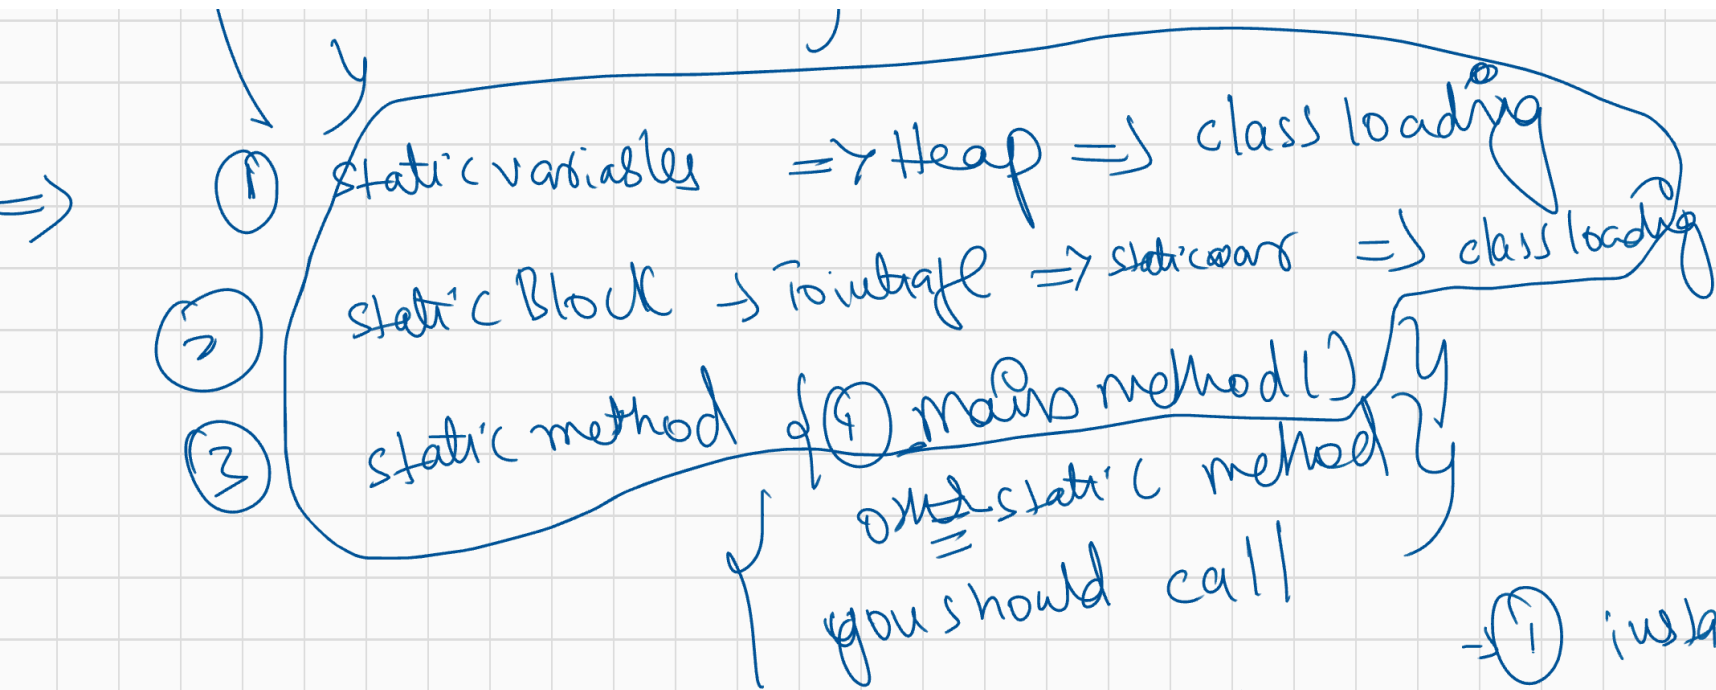 ① static variables => Heap => class loading
=>
② static Block -> To => static var => class loading
③ static method ① main method()
static method
you should call
-> ① insta